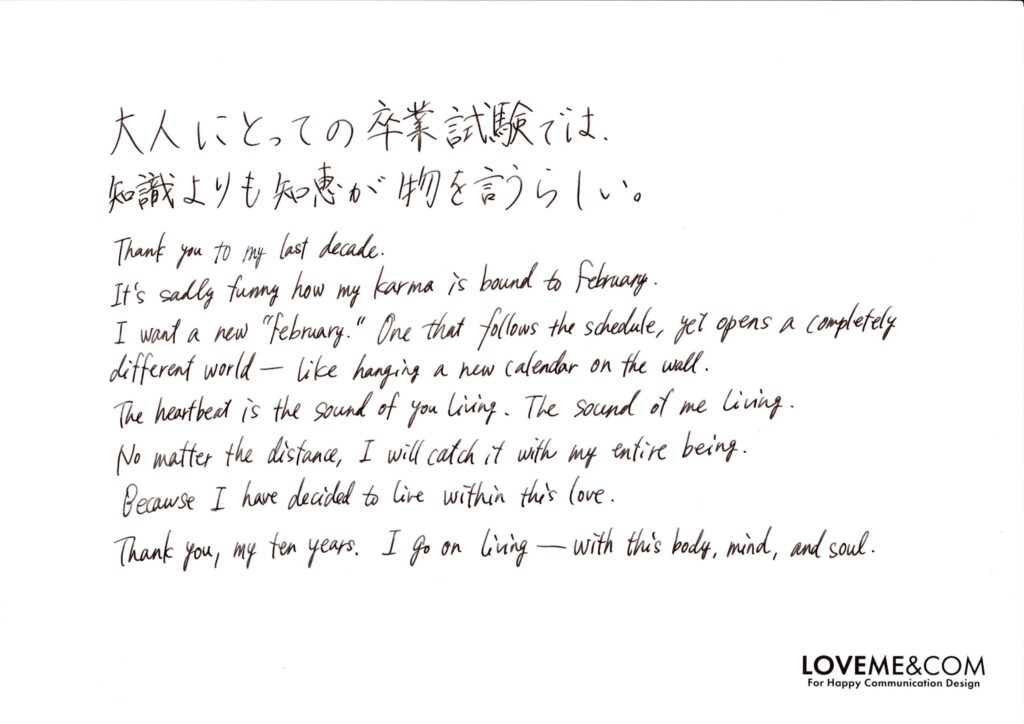 大人にとっての卒業試験では、
知識よりも知恵が物を言うらしい。
Thank you to my last decade.
It's sadly funny how my karma is bound to February.
I want a new "February." One that follows the schedule, yet opens a completely
different world — like hanging a new calendar on the wall.
The heartbeat is the sound of you living. The sound of me living.
No matter the distance, I will catch it with my entire being.
Because I have decided to live within this love.
Thank you, my ten years. I go on living — with this body, mind, and soul.
LOVEME&COM
For Happy Communication Design